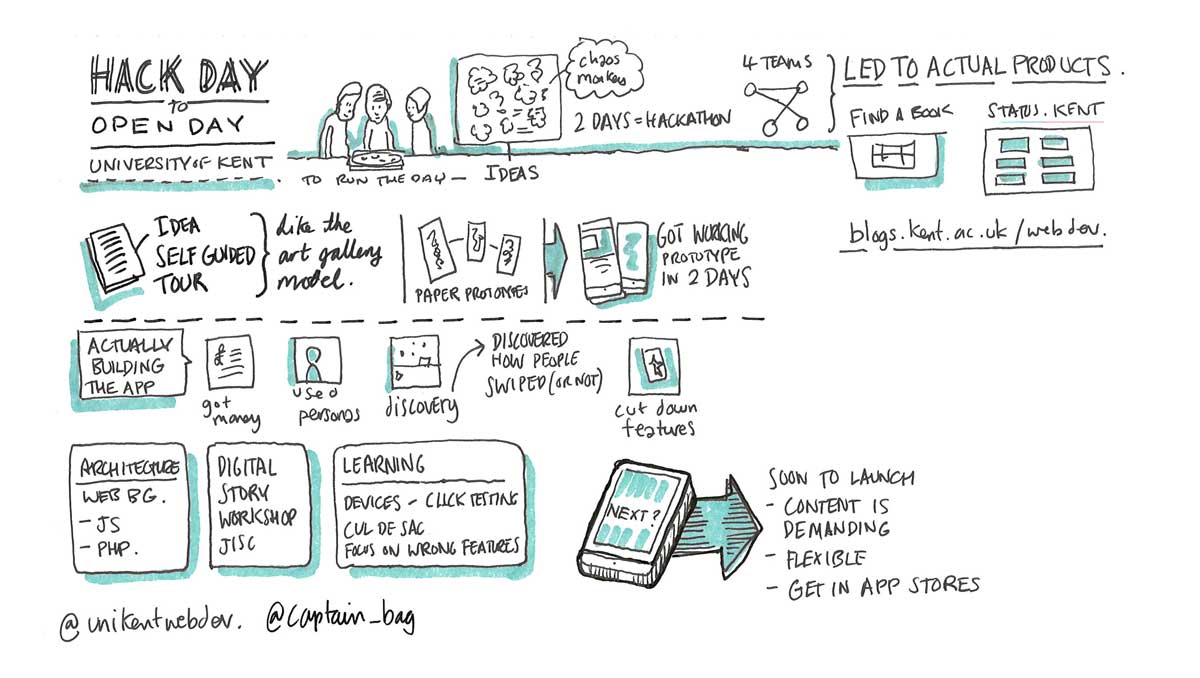 HACK DAY
to
OPEN DAY
UNIVERSITY OF KENT.
TO RUN THE DAY – IDEAS
chaos
monkey
2 DAYS = HACKATHON
4 TEAMS
LED TO ACTUAL PRODUCTS.
FIND A BOOK
STATUS.KENT
blogs.kent.ac.uk/webdev.
IDEA
SELF GUIDED
TOUR
Like the
art gallery
model.
PAPER PROTOTYPES
GOT WORKING
PROTOTYPE
IN 2 DAYS
ACTUALLY
BUILDING
THE APP
£
got
money
used
personas
discovery
DISCOVERED
HOW PEOPLE
SWIPED (OR NOT)
cut down
features
ARCHITECTURE
WEB BG.
– JS
– PHP.
DIGITAL
STORY
WORKSHOP
JISC
LEARNING
DEVICES – CLICK TESTING
CUL DE SAC
FOCUS ON WRONG FEATURES
NEXT?
SOON TO LAUNCH
– CONTENT IS
DEMANDING
– FLEXIBLE
– GET IN APP STORES
@unikentwebdev. @captain_bag